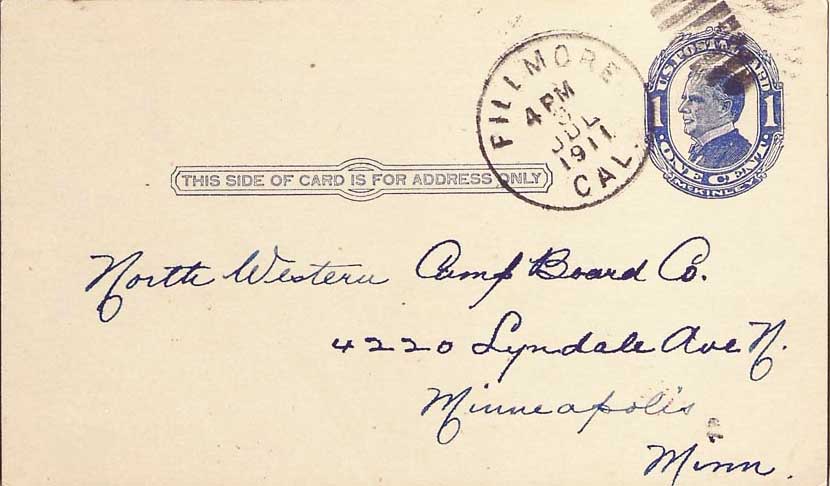 FILLMORE
4 PM
JUL
1911
CAL.
U.S. POSTAL CARD
1 1
ONE CENT
McKINLEY
THIS SIDE OF CARD IS FOR ADDRESS ONLY
North Western Camp Board Co.
4220 Lyndale Ave N.
Minneapolis
Minn.